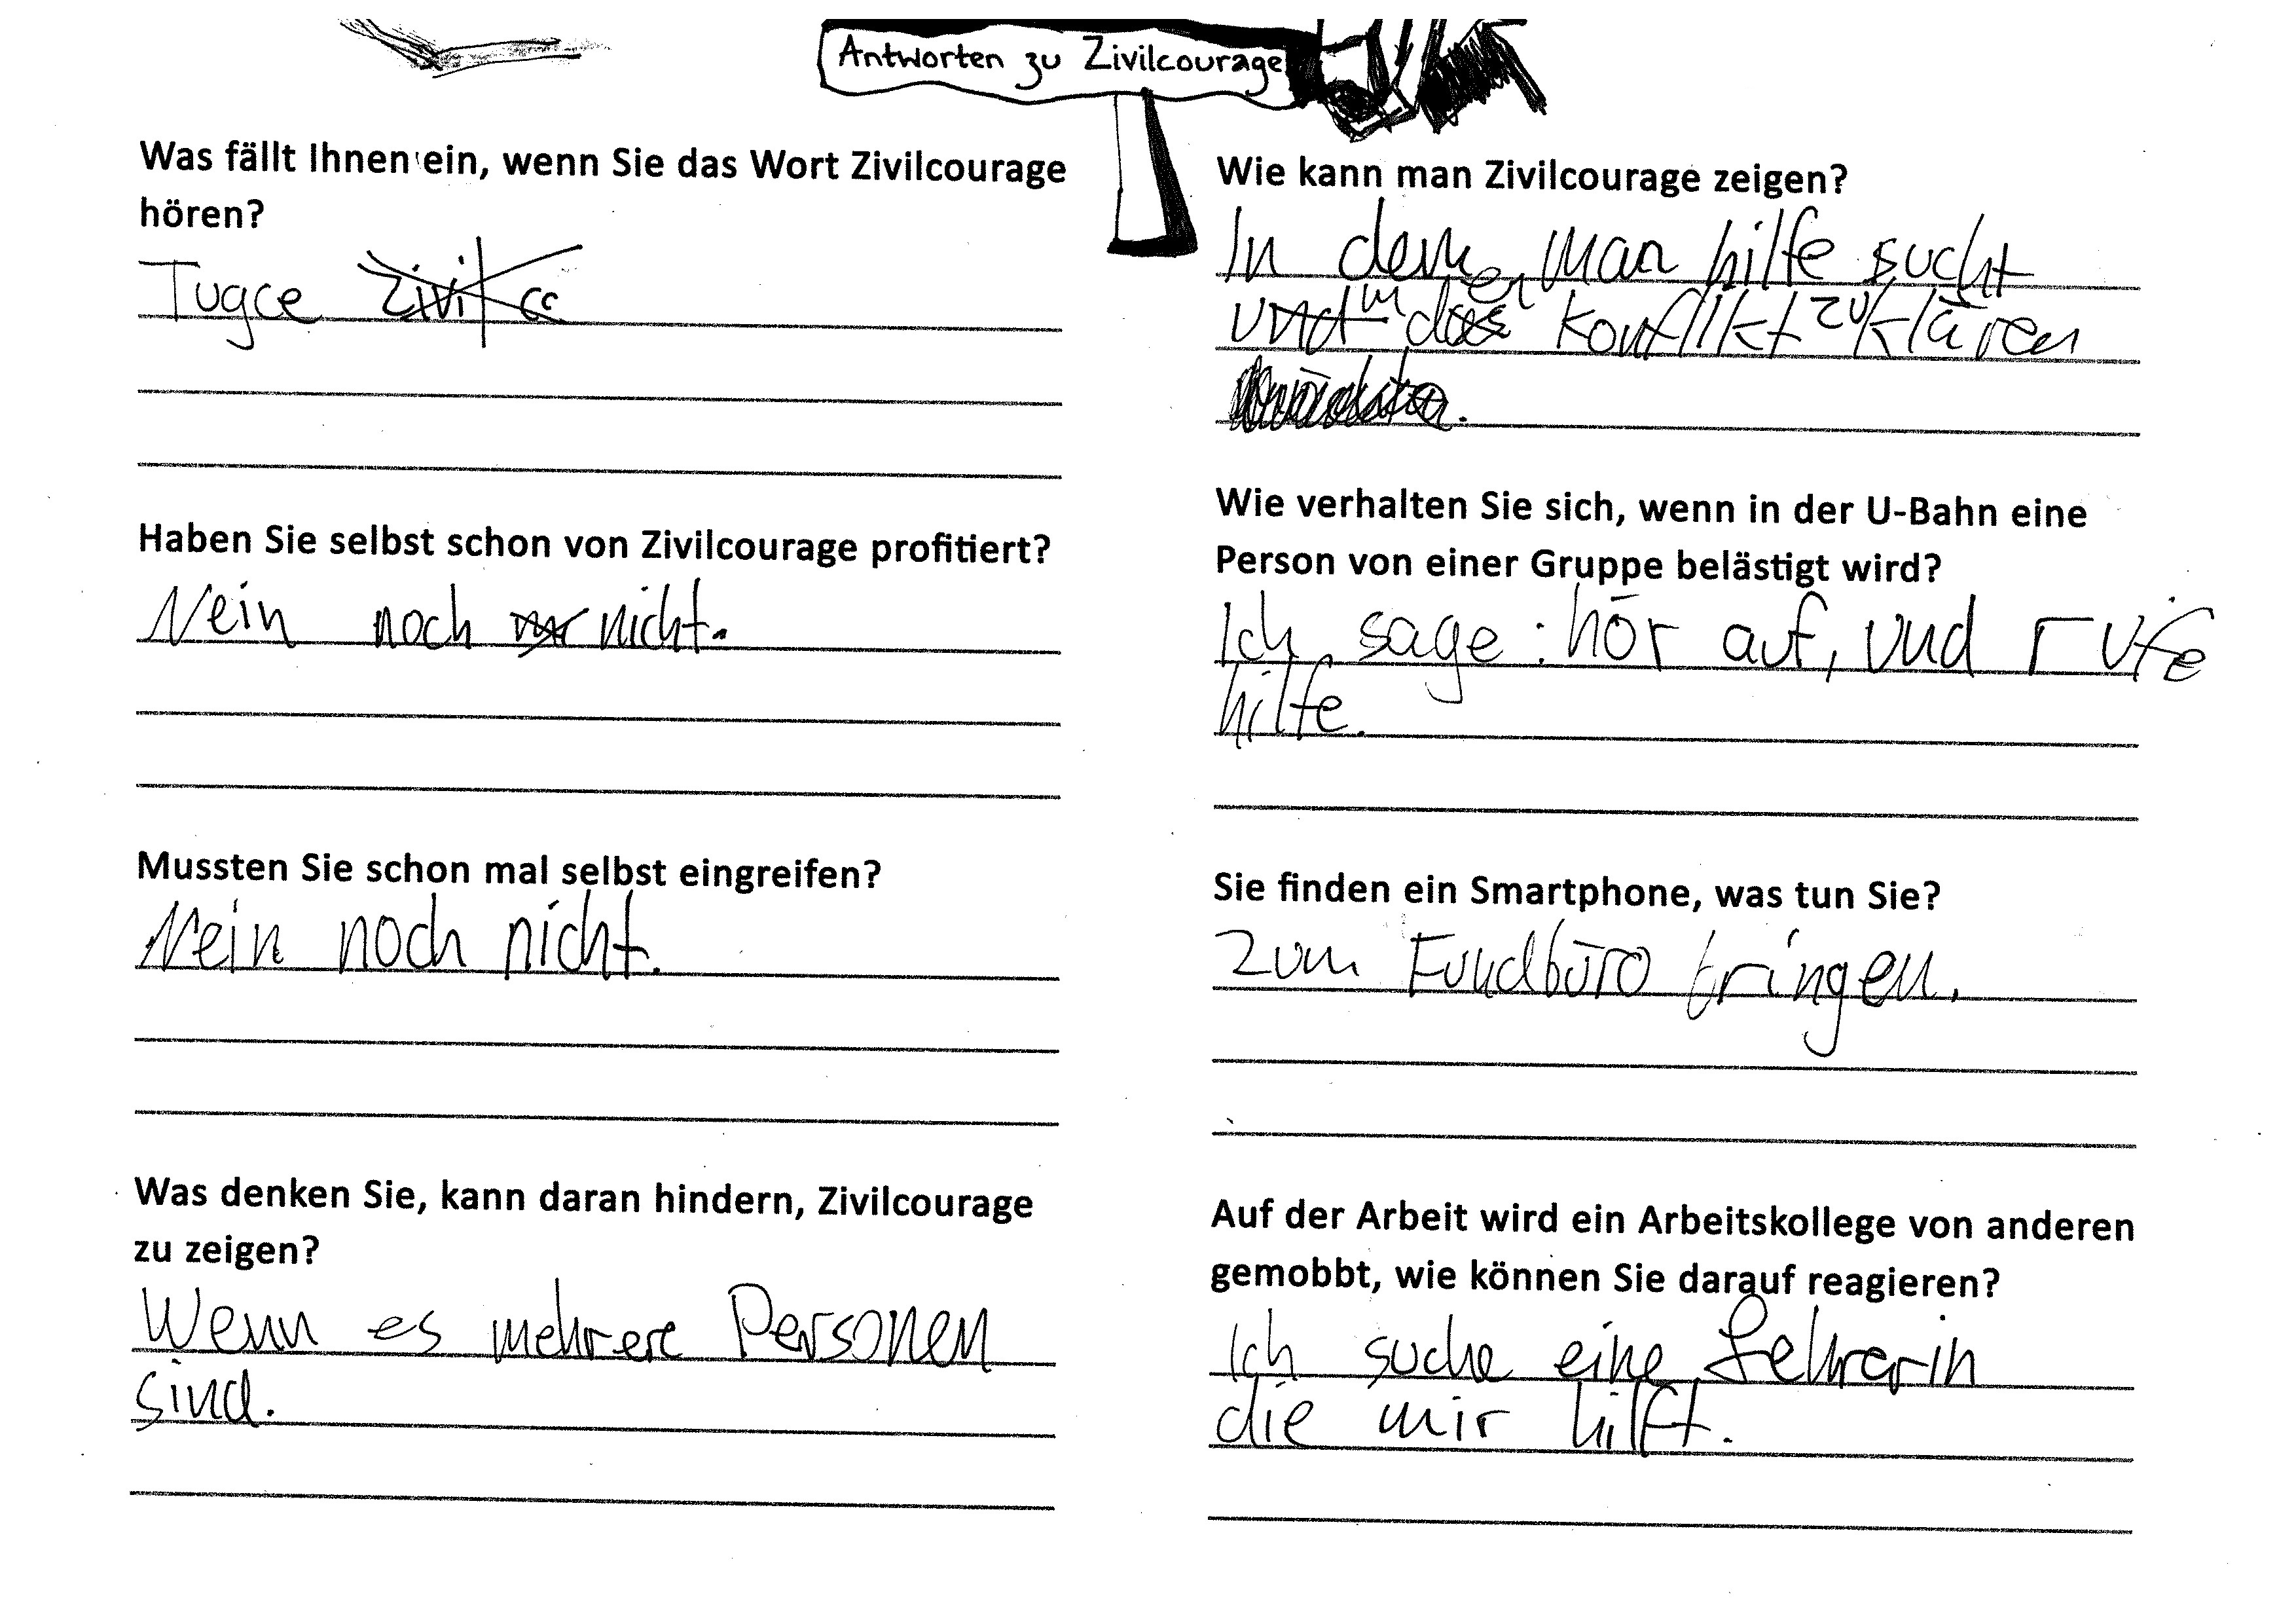 Antworten zu Zivilcourage
Was fällt Ihnen ein, wenn Sie das Wort Zivilcourage
hören?
Tugce
Haben Sie selbst schon von Zivilcourage profitiert?
Nein noch nicht.
Mussten Sie schon mal selbst eingreifen?
Nein noch nicht.
Was denken Sie, kann daran hindern, Zivilcourage
zu zeigen?
Wenn es mehrere Personen
sind.
Wie kann man Zivilcourage zeigen?
In dem man hilfe sucht
und um den Konflikt zu klären
.
Wie verhalten Sie sich, wenn in der U-Bahn eine
Person von einer Gruppe belästigt wird?
Ich sage: hör auf, und rufe
hilfe.
Sie finden ein Smartphone, was tun Sie?
Zum Fundbüro bringen.
Auf der Arbeit wird ein Arbeitskollege von anderen
gemobbt, wie können Sie darauf reagieren?
Ich suche eine Lehrerin
die mir hilft.